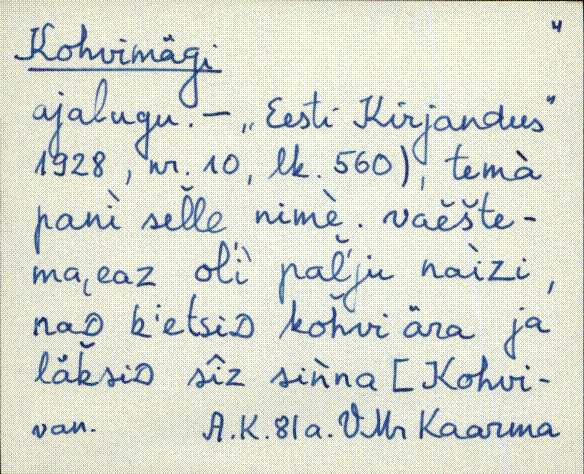 4
Kohvimägi
ajalugu. – „Eesti Kirjandus”
1928, nr. 10, lk. 560), temà
panì sel̆le nimè. vaĕšte-
ma,eaz ol'ì pal̆'ju naìzi,
naᴅ k'etsiᴅ kŏhvi ära ja
läksiᴅ sîz siǹna [Kohvi-
van. A.K. 81a. VMr Kaarma